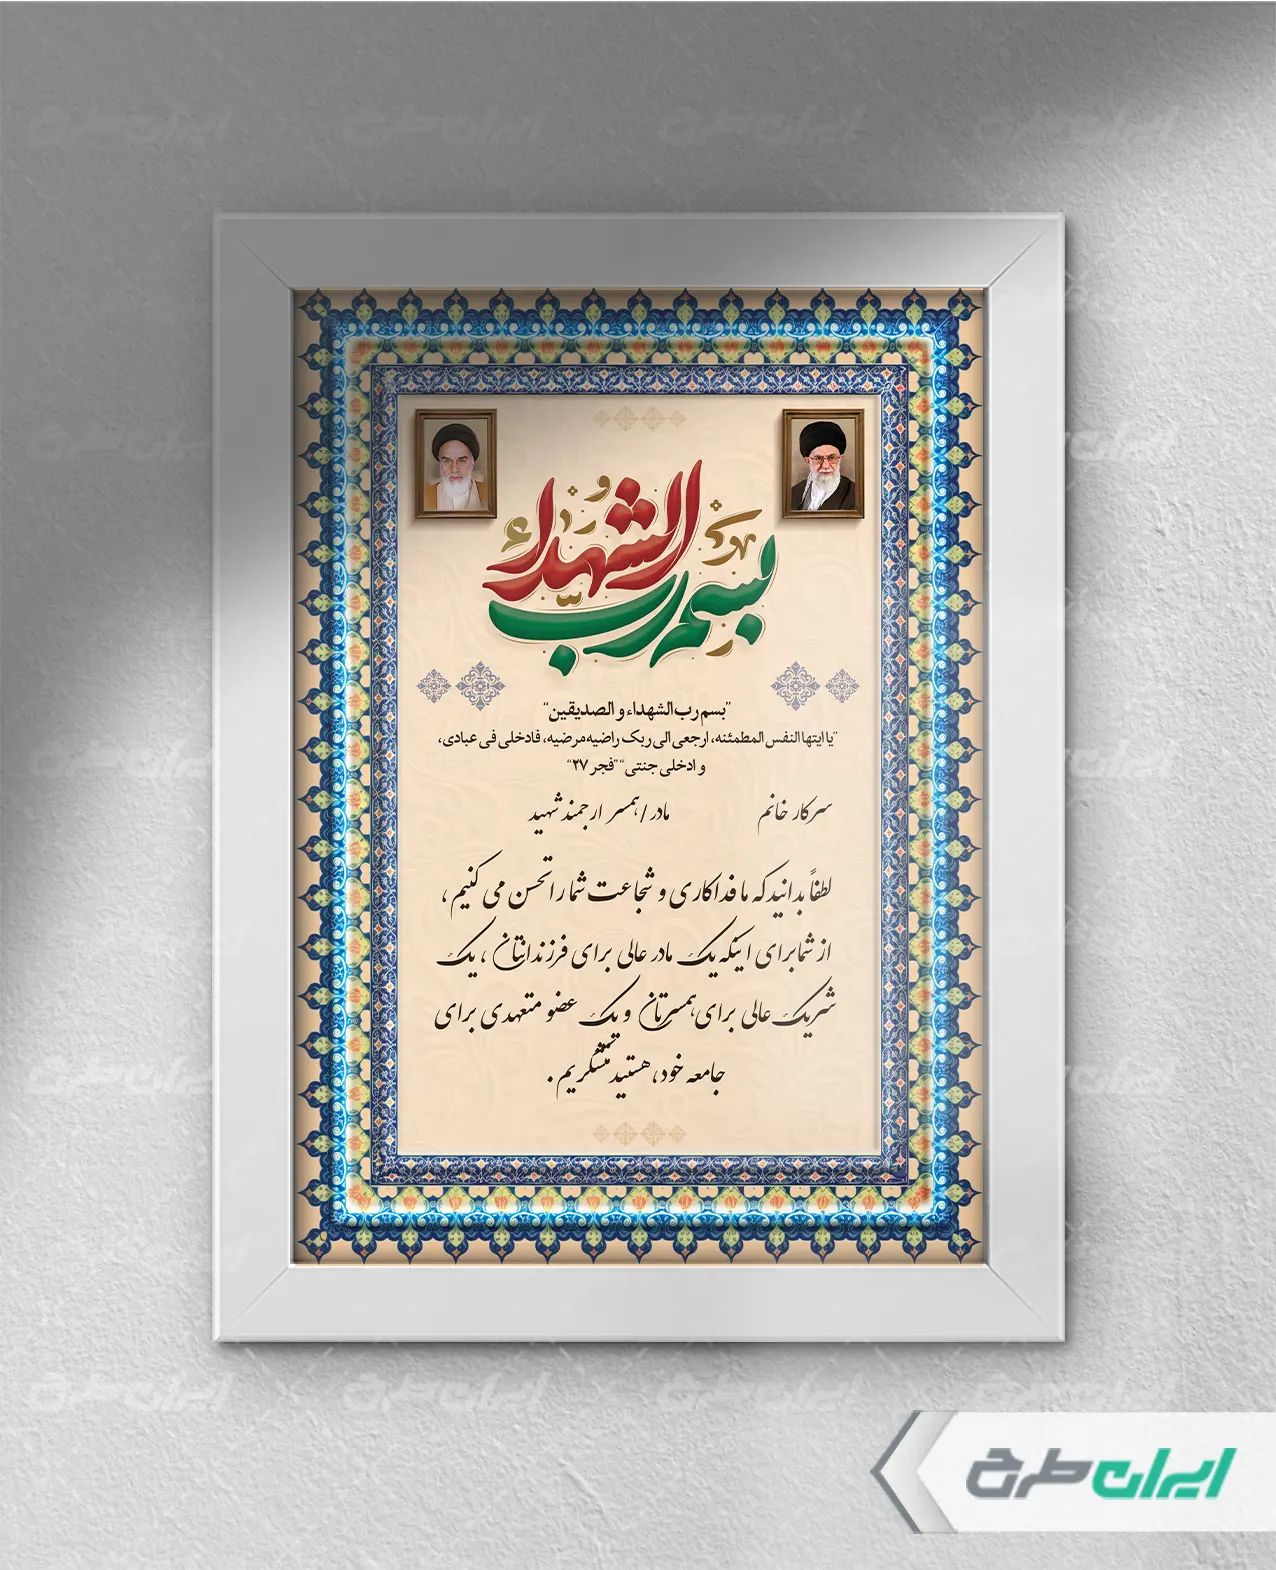 بسم رب الشهداء
"بسم رب الشهداء و الصدیقین"
"یا ایتها النفس المطمئنه، ارجعی الی ربک راضیه مرضیه، فادخلی فی عبادی،
و ادخلی جنتی" "فجر ۲۷"
سرکار خانم مادر / همسر ارجمند شهید
لطفاً بدانید که ما فداکاری و شجاعت شما را تحسن می کنیم،
از شما برای اینکه یک مادر عالی برای فرزندانتان، یک
شریک عالی برای همسرتان و یک عضو متعهدی برای
جامعه خود، هستید متشکریم.
ایران طرح